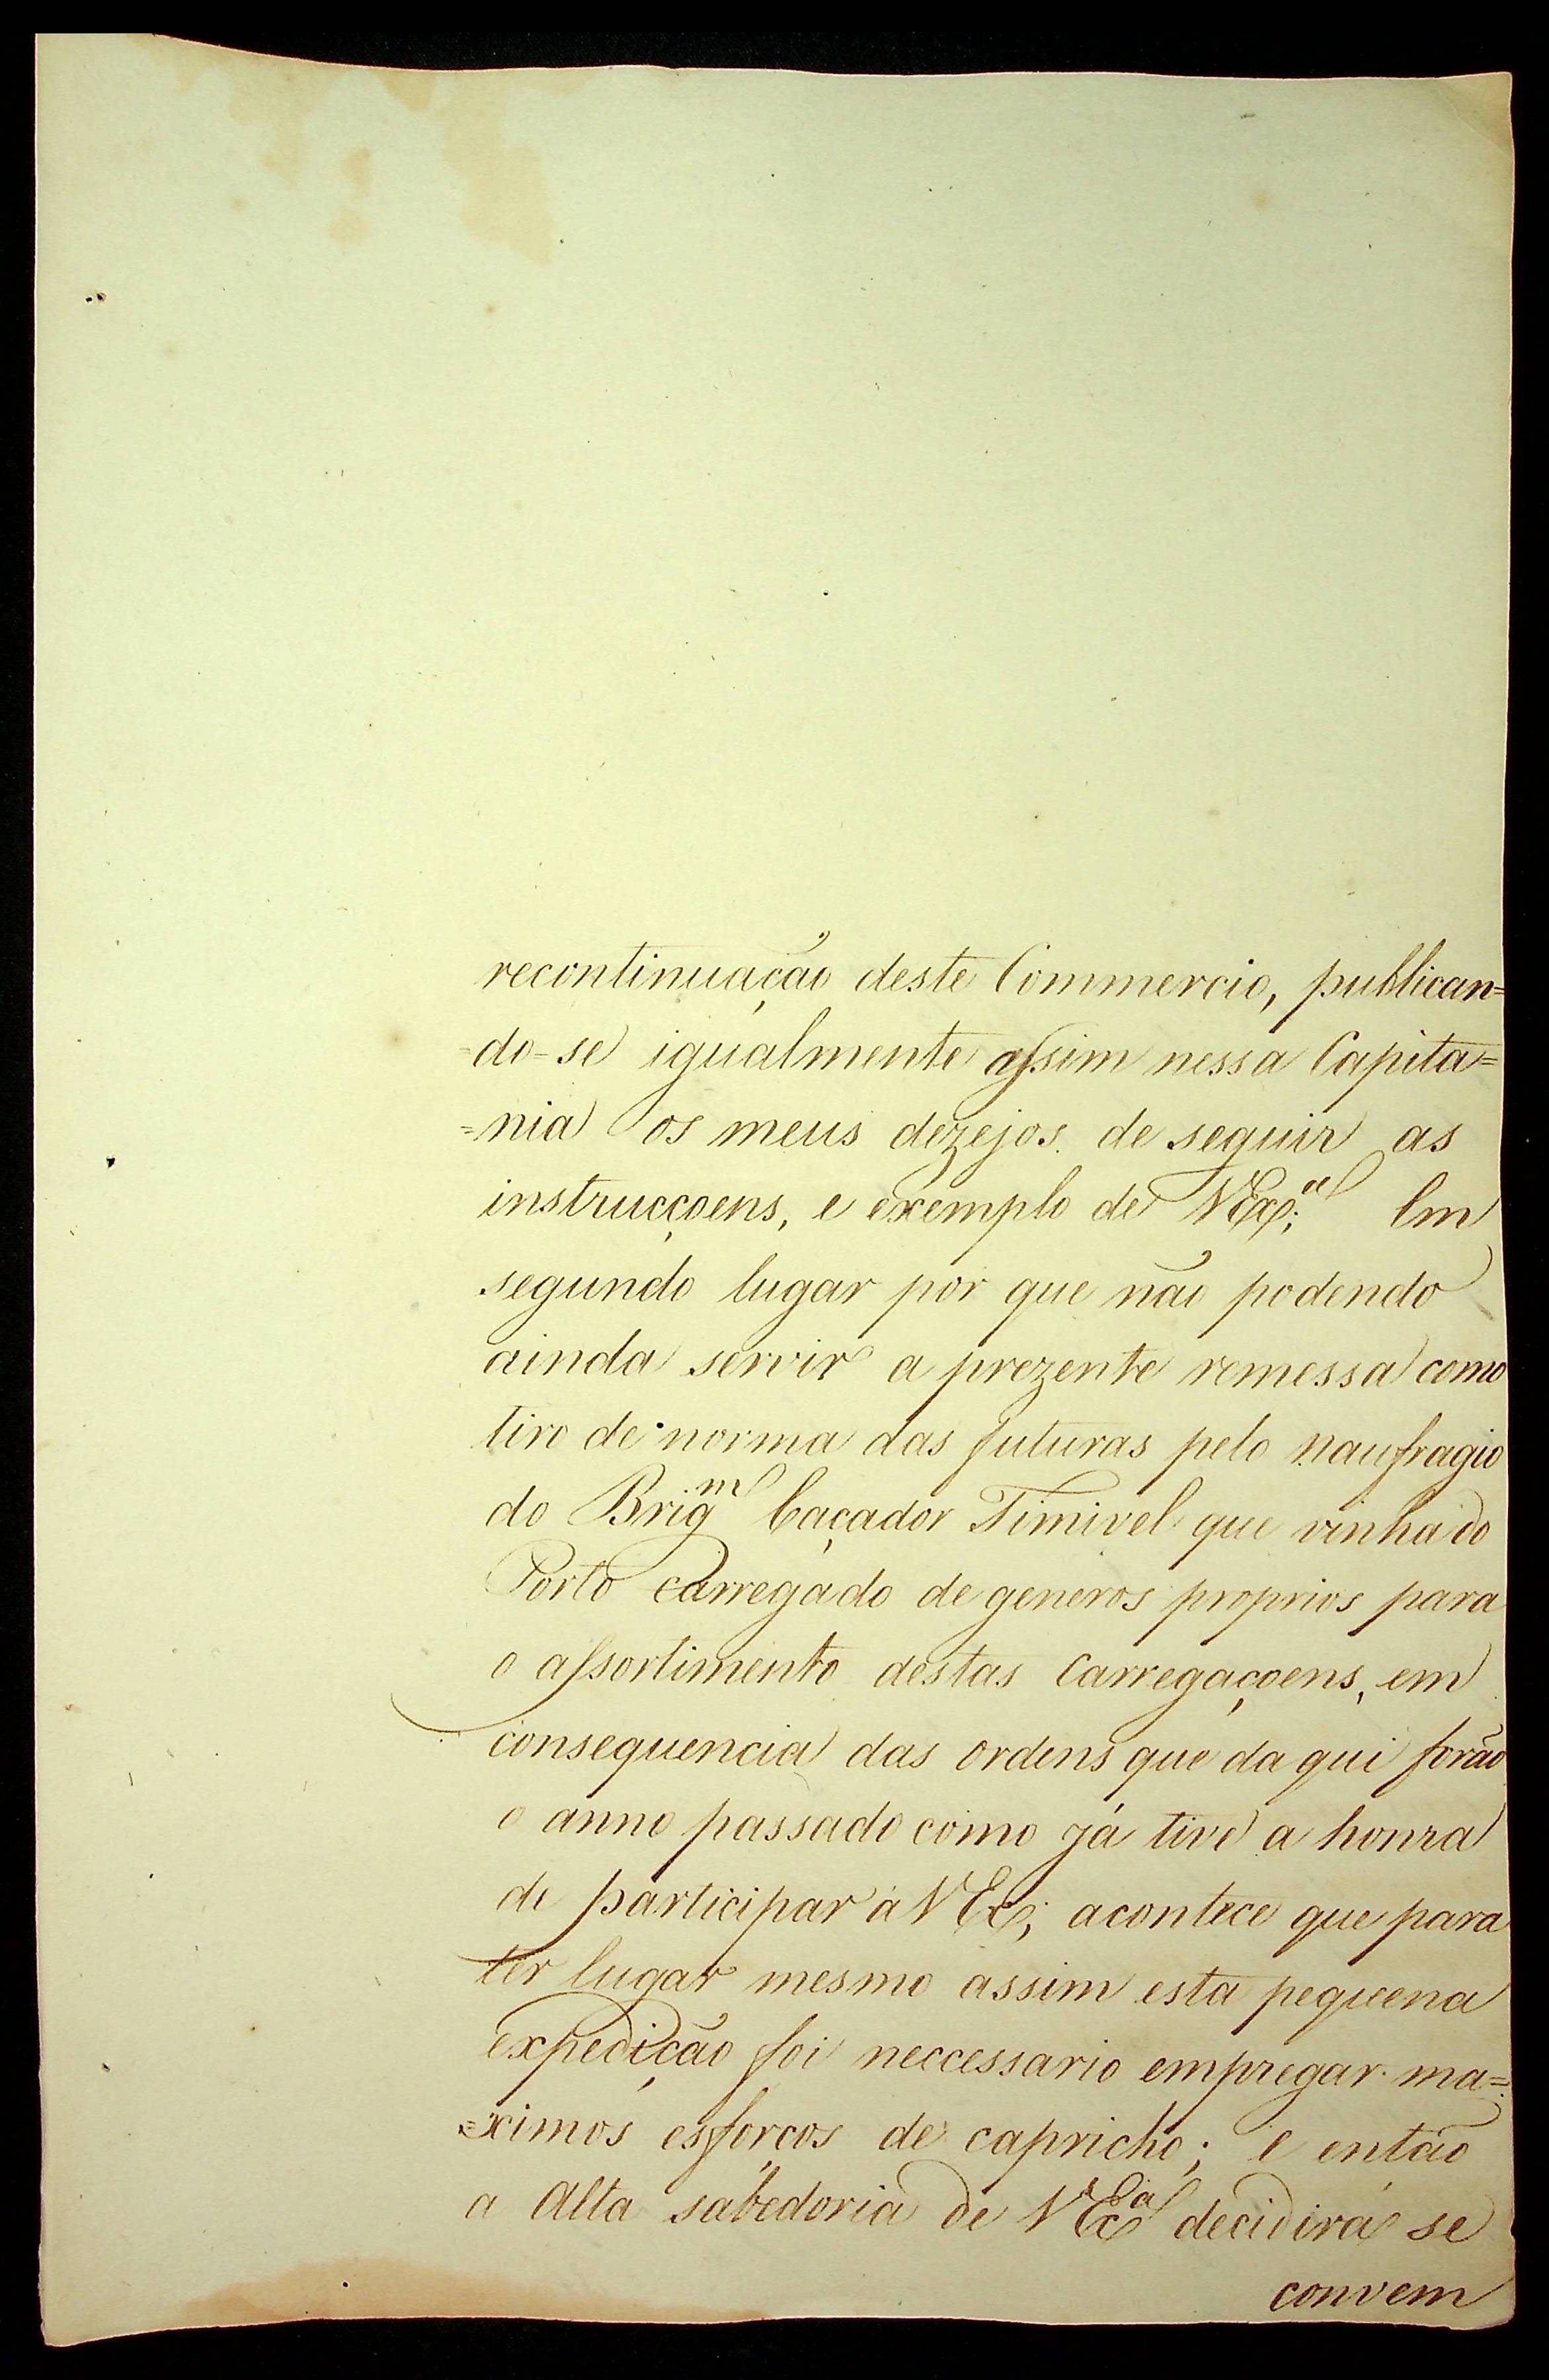 recontinuação deste Commercio, publican=
=do-se igualmente assim nessa Capita=
=nia os meus dezejos de seguir as
instrucçoens, e exemplo de VEx.ª; Em
segundo lugar por que não podendo
ainda servir a prezente remessa como
tiro de norma das futuras pelo naufragio
do Brig.m Caçador Timivel que vinha do
Porto carregado de generos proprios para
o assortimento destas Carregaçoens, em
consequencia das ordens que da qui forão
o anno passado como já tive a honra
de participar à VEx.; acontece que para
ter lugar mesmo assim esta pequena
expedição foi neccessario empregar ma=
=ximos esforços de capricho; e então
a Alta sabedoria de VEx.ª decidirá se
convem